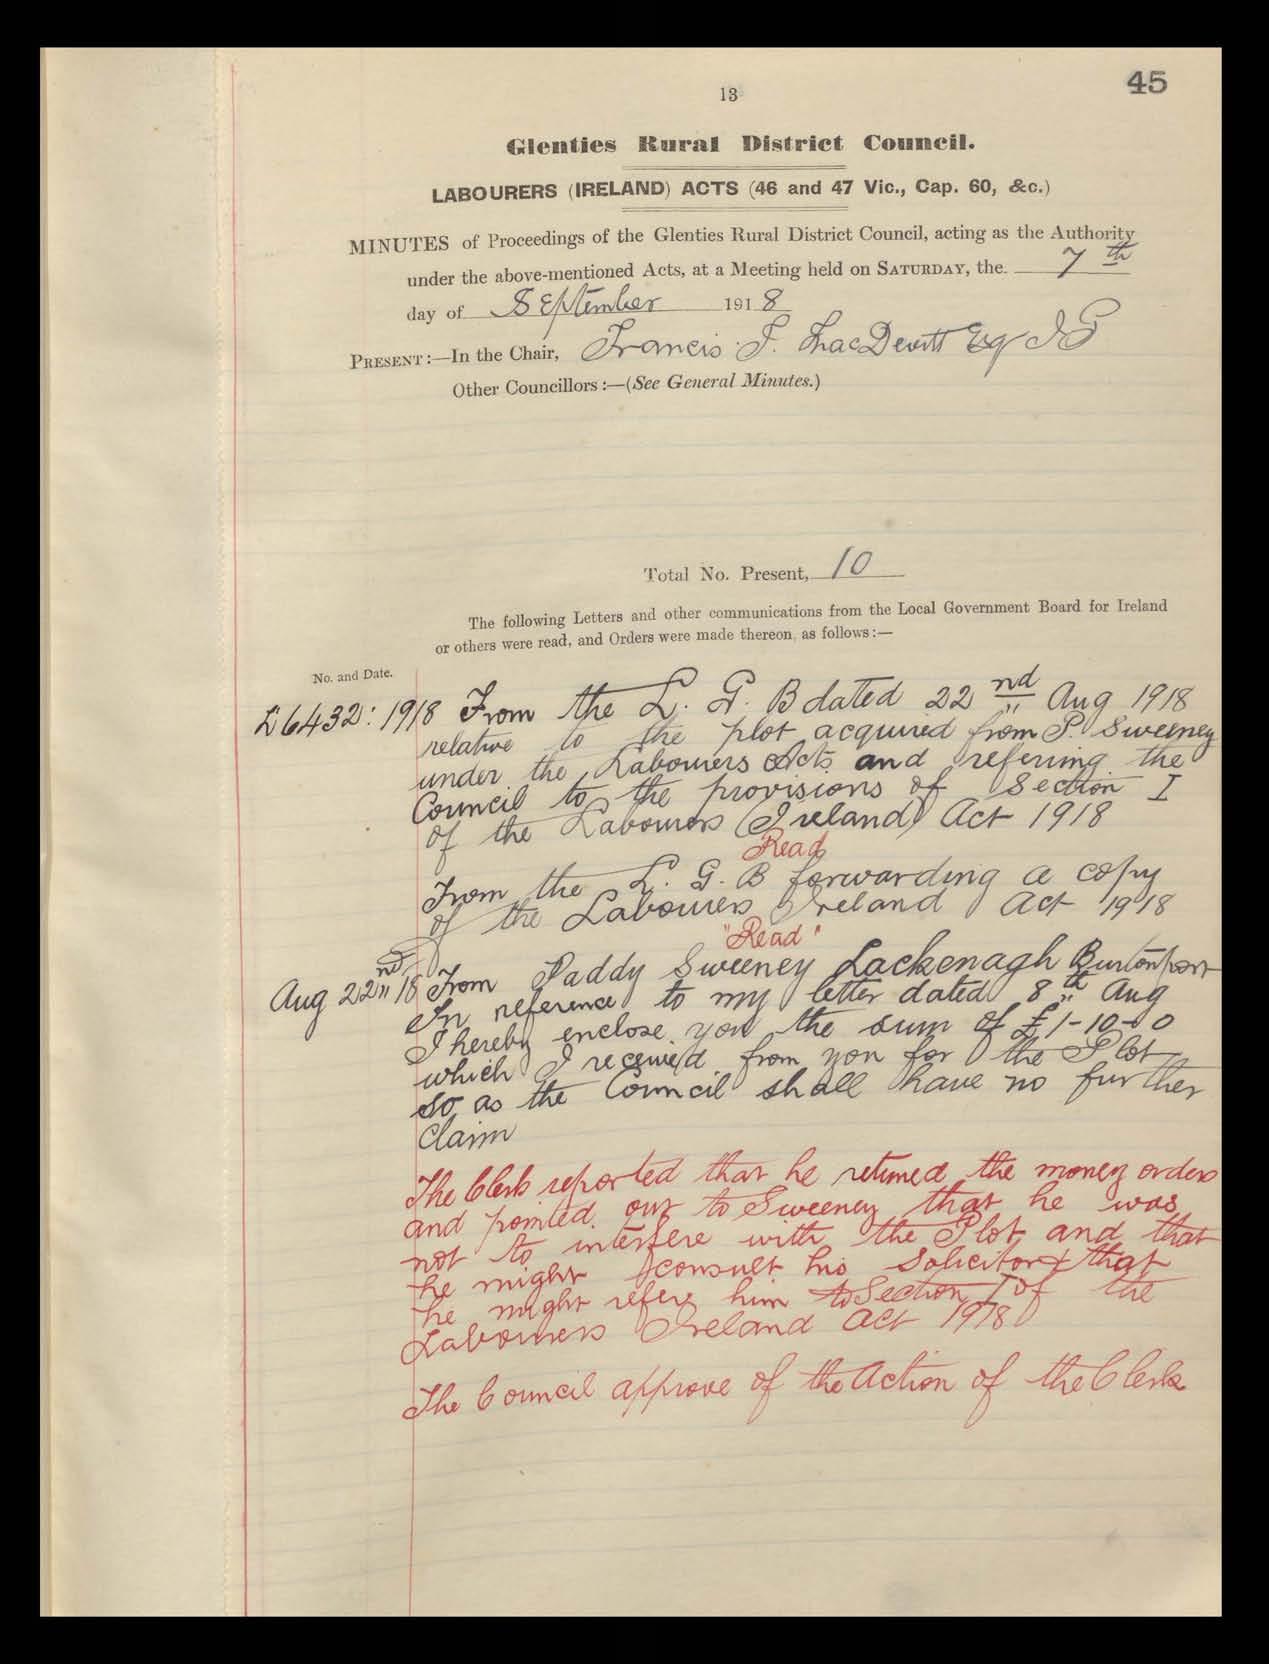 45
13
Glenties Rural District Council.
LABOURERS (IRELAND) ACTS (46 and 47 Vic., Cap. 60, &c.)
MINUTES of Proceedings of the Glenties Rural District Council, acting as the Authority
under the above-mentioned Acts, at a Meeting held on SATURDAY, the 7th
day of September 1918
PRESENT:—In the Chair, Francis T. MacDevitt Esq JP
Other Councillors:—(See General Minutes.)
Total No. Present, 10
The following Letters and other communications from the Local Government Board for Ireland
or others were read, and Orders were made thereon, as follows:—
No. and Date.
L6432: 1918 From the L. G. B dated 22nd Aug 1918
relative to the plot acquired from P. Sweeney
under the Labourers Acts and referring the
Council to the provisions of Section I
of the Labourers (Ireland) Act 1918
Read
From the L. G. B forwarding a copy
of the Labourers Ireland Act 1918
"Read"
Aug 22nd 18 From Paddy Sweeney Lackenagh Burtonport
In reference to my letter dated 8th Aug
I hereby enclose you the sum of £1-10-0
which I received from you for the Plot
so as the Council shall have no further
claim
The Clerk reported that he returned the money orders
and pointed out to Sweeney that he was
not to interfere with the Plot and that
he might consult his Solicitor & that
he might refere him to Section I of the
Labourers Ireland Act 1918
The Council approve of the Action of the Clerk